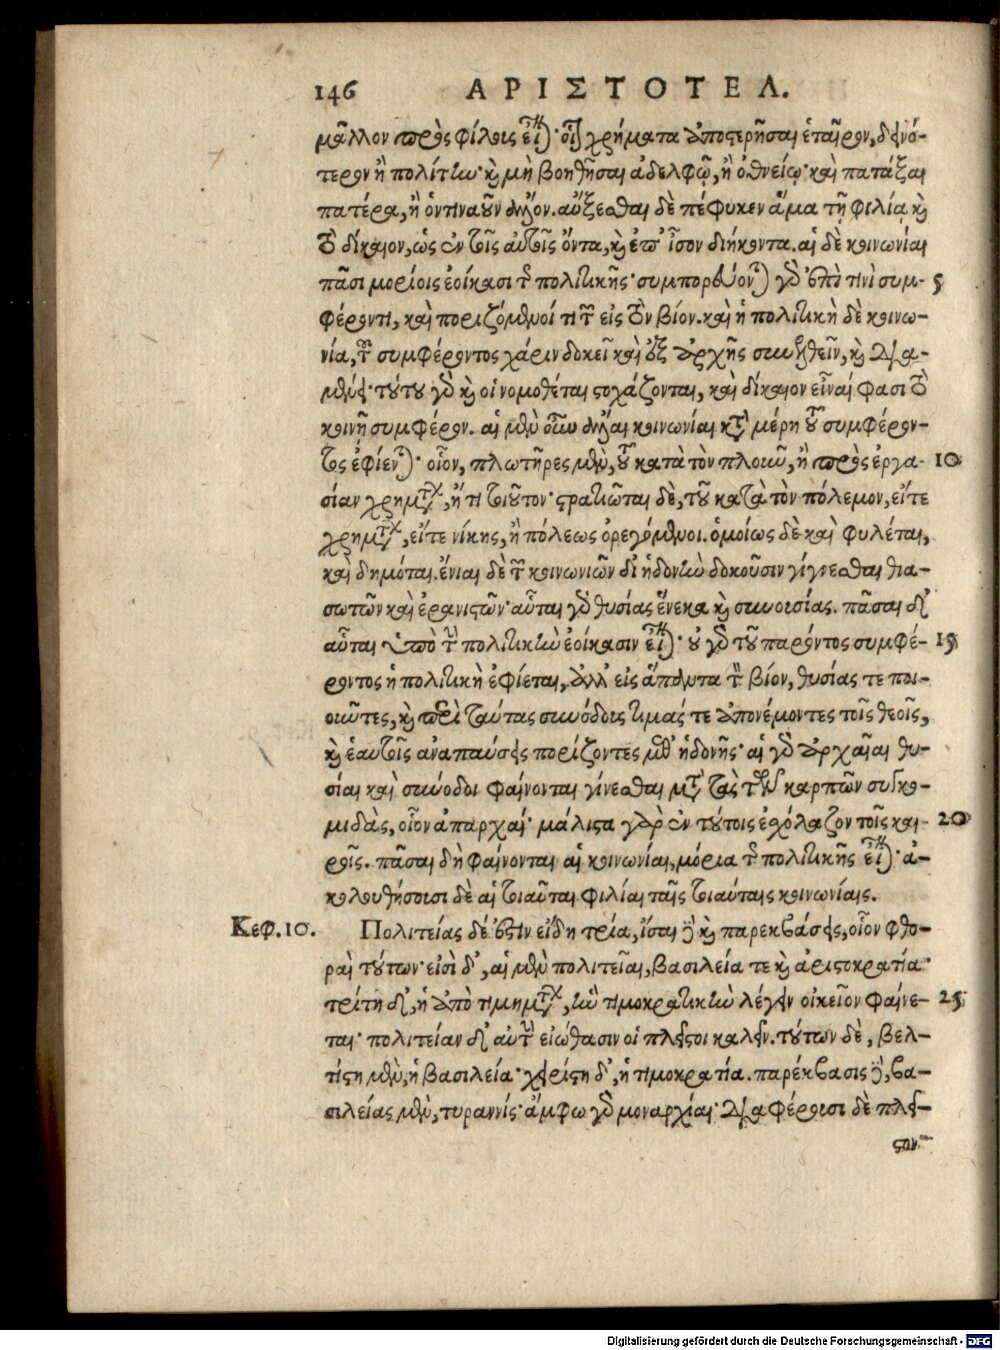 146 ΑΡΙΣΤΟΤΕΛ.
μᾶλλον πρὸς φίλους εἶναι· οἷον χρήματα ἀποστερῆσαι ἑταῖρον, δεινό-
τερον ἢ πολίτην· καὶ μὴ βοηθῆσαι ἀδελφῷ, ἢ ὀθνείῳ· καὶ πατάξαι
πατέρα, ἢ ὁντιναοῦν ἄλλον. αὔξεσθαι δὲ πέφυκεν ἅμα τῇ φιλίᾳ καὶ
τὸ δίκαιον, ὡς ἐν τοῖς αὐτοῖς ὄντα, καὶ ἐπ' ἶσον διήκοντα. αἱ δὲ κοινωνίαι
πᾶσαι μορίοις ἐοίκασι τῆς πολιτικῆς· συμπορεύονται γὰρ ἐπὶ τινὶ συμ- 5
φέροντι, καὶ ποριζόμενοί τι τῶν εἰς τὸν βίον. καὶ ἡ πολιτικὴ δὲ κοινω-
νία, τοῦ συμφέροντος χάριν δοκεῖ καὶ ἐξ ἀρχῆς συνελθεῖν, καὶ δια-
μένειν· τούτου γὰρ καὶ οἱ νομοθέται στοχάζονται, καὶ δίκαιον εἶναί φασι τὸ
κοινῇ συμφέρον. αἱ μὲν οὖν ἄλλαι κοινωνίαι κατὰ μέρη τοῦ συμφέρον-
τος ἐφίενται· οἷον, πλωτῆρες μὲν, τοῦ κατὰ τὸν πλοῦν, ἢ πρὸς ἐργα- 10
σίαν χρημάτων, ἤ τι τοιοῦτον· στρατιῶται δὲ, τοῦ κατὰ τὸν πόλεμον, εἴτε
χρημάτων, εἴτε νίκης, ἢ πόλεως ὀρεγόμενοι. ὁμοίως δὲ καὶ φυλέται,
καὶ δημόται. ἔνιαι δὲ τῶν κοινωνιῶν δι' ἡδονὴν δοκοῦσιν γίγνεσθαι θια-
σωτῶν καὶ ἐρανιστῶν· αὗται γὰρ θυσίας ἕνεκα καὶ συνουσίας. πᾶσαι δ'
αὗται ὑπὸ τὴν πολιτικὴν ἐοίκασιν εἶναι· οὐ γὰρ τοῦ παρόντος συμφέ- 15
ροντος ἡ πολιτικὴ ἐφίεται, ἀλλ' εἰς ἅπαντα τὸν βίον, θυσίας τε ποι-
οῦντες, καὶ περὶ ταύτας συνόδους τιμάς τε ἀπονέμοντες τοῖς θεοῖς,
καὶ ἑαυτοῖς ἀναπαύσεις πορίζοντες μεθ' ἡδονῆς· αἱ γὰρ ἀρχαῖαι θυ-
σίαι καὶ σύνοδοι φαίνονται γίνεσθαι μετὰ τὰς τῶν καρπῶν συγκο-
μιδὰς, οἷον ἀπαρχαί· μάλιστα γὰρ ἐν τούτοις ἐσχόλαζον τοῖς και- 20
ροῖς. πᾶσαι δὴ φαίνονται αἱ κοινωνίαι, μόρια τῆς πολιτικῆς εἶναι· ἀ-
κολουθήσουσι δὲ αἱ τοιαῦται φιλίαι ταῖς τοιαύταις κοινωνίαις.
Κεφ. 10. Πολιτείας δέ ἐστιν εἴδη τρία, ἴσαι δὲ καὶ παρεκβάσεις, οἷον φθο-
ραὶ τούτων· εἰσὶ δ', αἱ μὲν πολιτεῖαι, βασιλεία τε καὶ ἀριστοκρατία·
τρίτη δ', ἡ ἀπὸ τιμημάτων, ἣν τιμοκρατικὴν λέγειν οἰκεῖον φαίνε- 25
ται· πολιτείαν δ' αὐτὴν εἰώθασιν οἱ πλεῖστοι καλεῖν. τούτων δὲ, βελ-
τίστη μὲν, ἡ βασιλεία· χειρίστη δ', ἡ τιμοκρατία. παρέκβασις δὲ, βα-
σιλείας μὲν, τυραννίς· ἄμφω γὰρ μοναρχίαι· διαφέρουσι δὲ πλεῖ-
στον
Digitalisierung gefördert durch die Deutsche Forschungsgemeinschaft - DFG